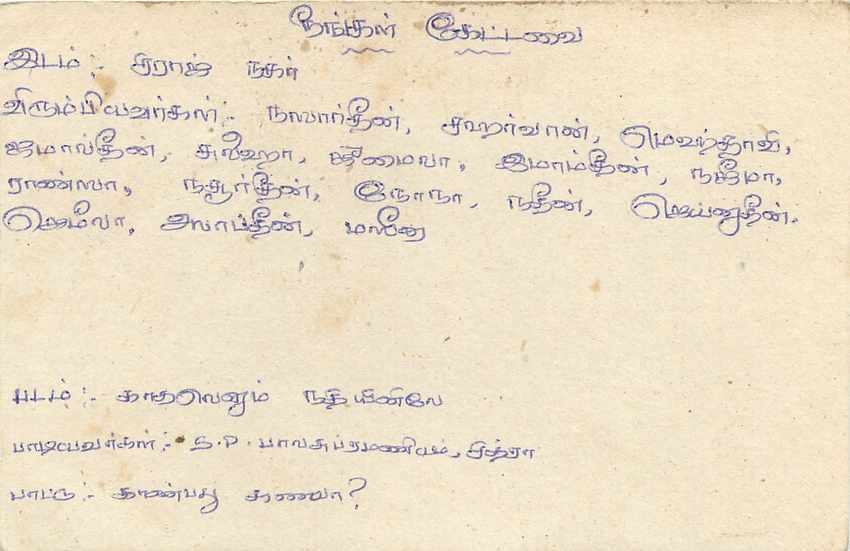 நீங்கள் கேட்டவை
இடம் :- சிராஜ் நகர்
விரும்பியவர்கள் :- நஸார்தீன், சஹர்வான், மெஹந்தாவி,
ஜமால்தீன், சுலைஹா, ஜீமைலா, இமாம்தீன், நஜீமா,
ராண்ஸா, நசூர்தீன், நோநா, நதீன், ஜெய்னுதீன்.
ஜெமீலா, அலாப்தீன்,
படம் :- காதலெனும் நதியினிலே
பாடியவர்கள் :- S.P. பாலசுப்ரமணியம், சித்ரா
பாட்டு :- காண்பது கனவா?